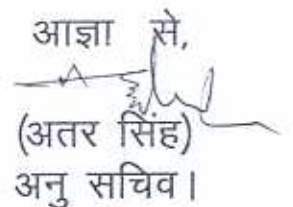 आज्ञा से,
(अतर सिंह)
अनु सचिव।